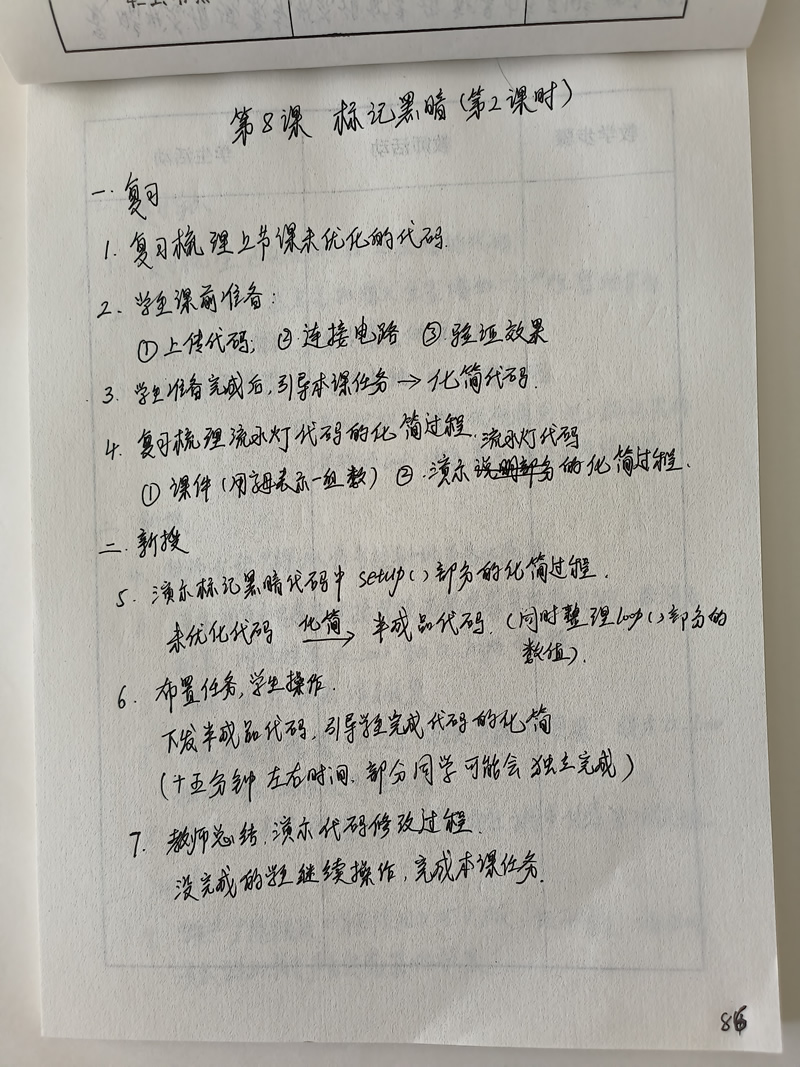 第8课 标记黑暗(第2课时)
一.复习
1. 复习梳理上节课未优化的代码.
2. 学生课前准备:
①上传代码; ②连接电路 ③验证效果
3. 学生准备完成后,引导本课任务→化简代码.
4. 复习梳理流水灯代码的化简过程.
流水灯代码
①课件(用字母表示一组数) ②.演示的化简过程.
二.新授
5. 演示标记黑暗代码中 setup()部分的化简过程.
未优化代码 化简→ 半成品代码.(同时整理loop()部分的
数值).
6. 布置任务,学生操作.
下发半成品代码,引导学生完成代码的化简
(十五分钟左右时间.部分同学可能会独立完成)
7. 教师总结.演示代码修改过程.
没完成的学生继续操作,完成本课任务.
86